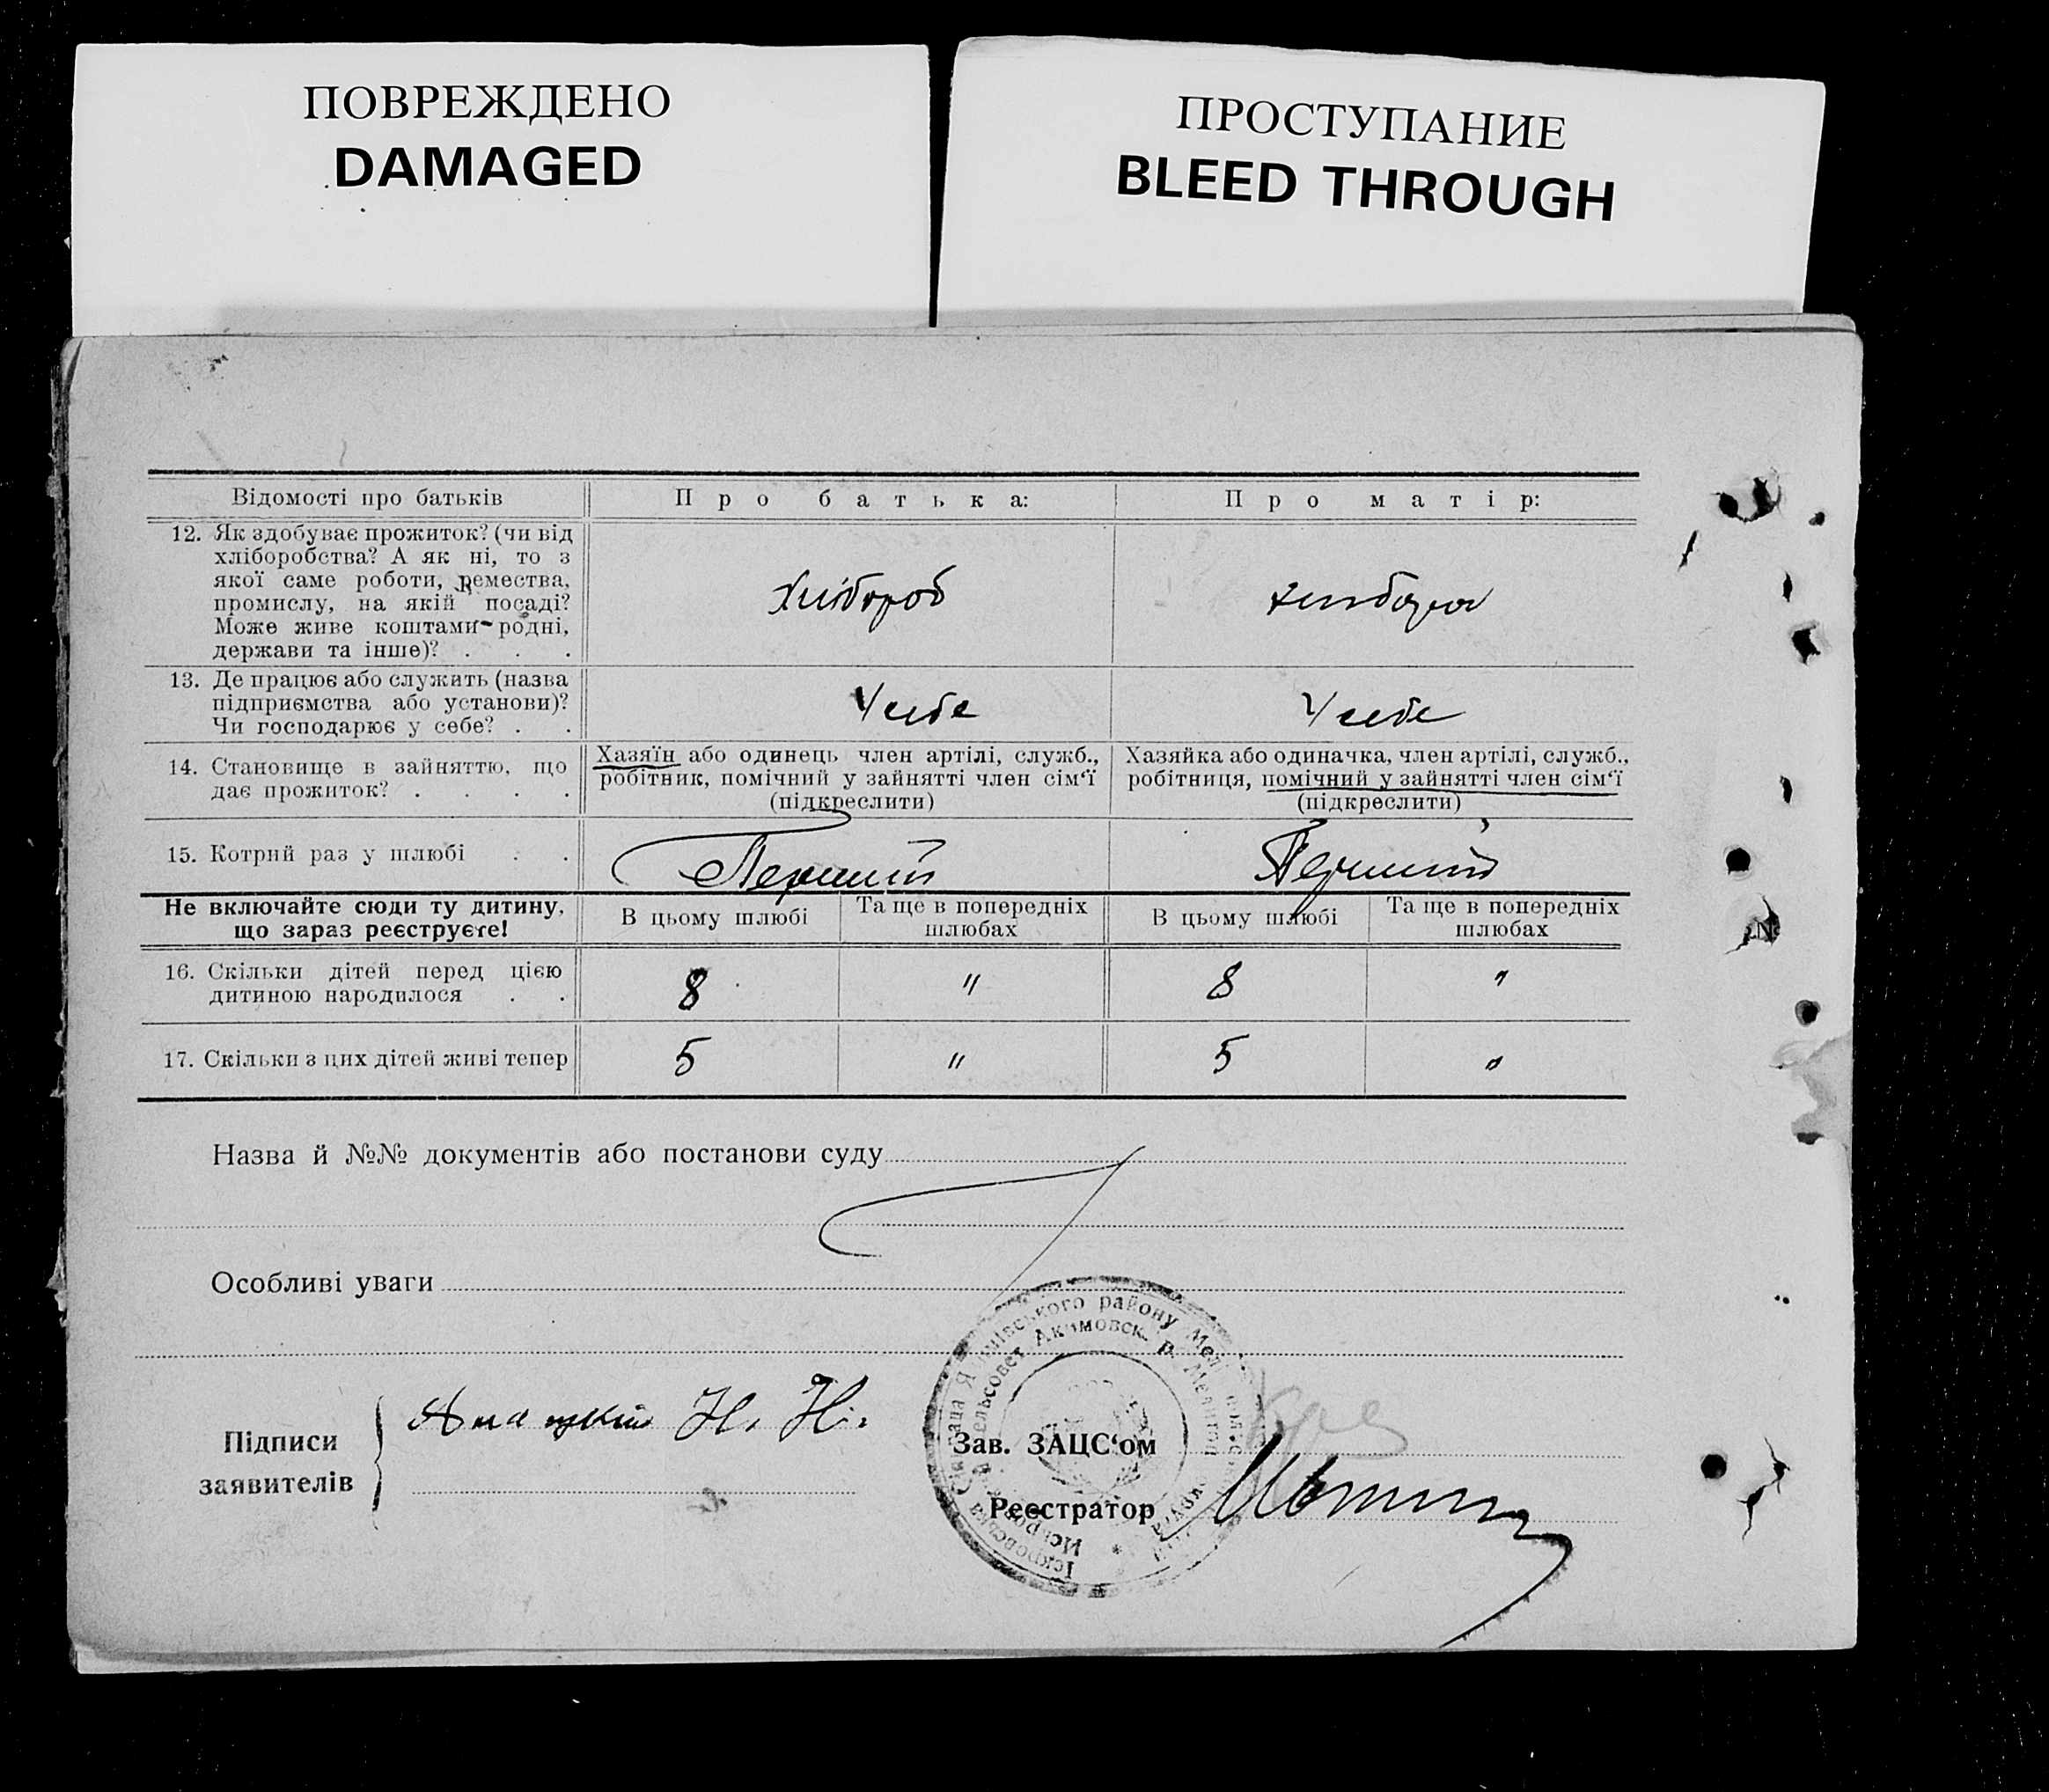 ПОВРЕЖДЕНО
DAMAGED
ПРОСТУПАНИЕ
BLEED THROUGH
Відомості про батьків
Про батька:
Про матір:
12. Як здобуває прожиток? (чи від
хліборобства? А як ні, то з
якої саме роботи, ремества,
промислу, на якій посаді?
Може живе коштами родні,
держави та інше)? . . .
Хлібороб
13. Де працює або служить (назва
підприємства або установи)?
Чи господарює у себе? . .
У себе
У себе
14. Становище в зайняттю, що
дає прожиток? . . . .
Хазяїн або одинець член артілі, служб.,
робітник, помічний у зайнятті член сім‘ї
(підкреслити)
Хазяйка або одиначка, член артілі, служб.,
робітниця, помічний у зайнятті член сім‘ї
(підкреслити)
15. Котрий раз у шлюбі . .
Перший
Перший
Не включайте сюди ту дитину,
що зараз реєструєте!
В цьому шлюбі
Та ще в попередніх
шлюбах
В цьому шлюбі
Та ще в попередніх
шлюбах
16. Скільки дітей перед цією
дитиною народилося . .
8
"
8
"
17. Скільки з цих дітей живі тепер
5
"
5
"
Назва й №№ документів або постанови суду
Особливі уваги
Підписи
заявителів
Н. Н.
Зав. ЗАЦС‘ом
Реєстратор
району
Акимовск. р.